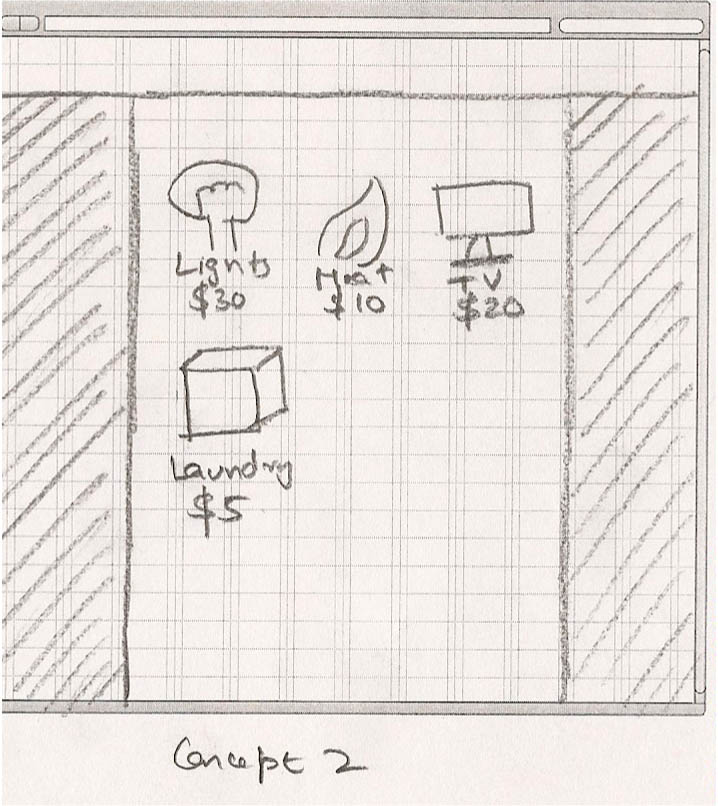 Lights
$30
Heat
$10
TV
$20
Laundry
$5
Concept 2